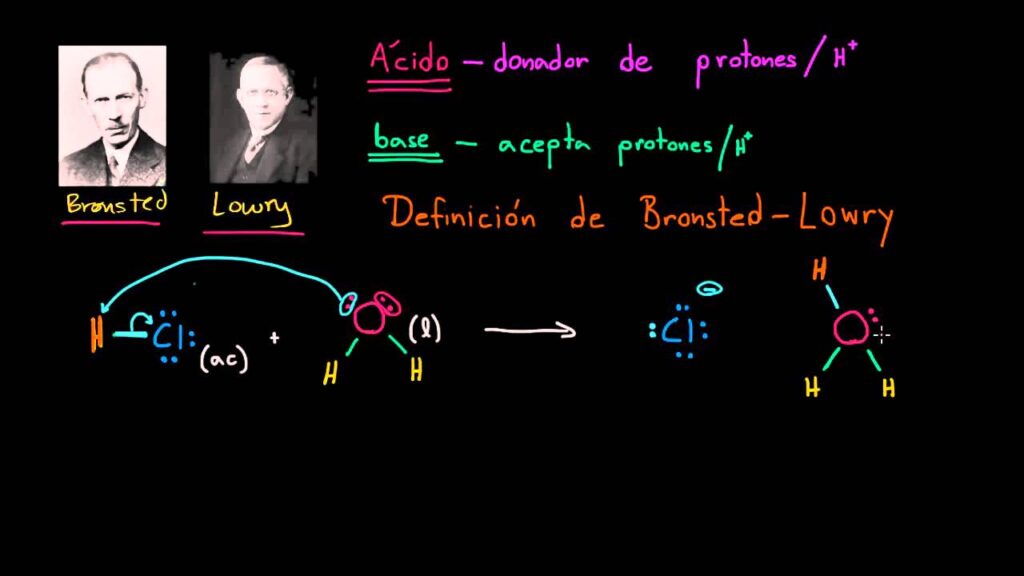 Ácido – donador de protones/H⁺
base – acepta protones/H⁺
Bronsted Lowry
Definición de Bronsted–Lowry
H
H–Cl (ac) + O (l) → Cl⁻ O
H H H H